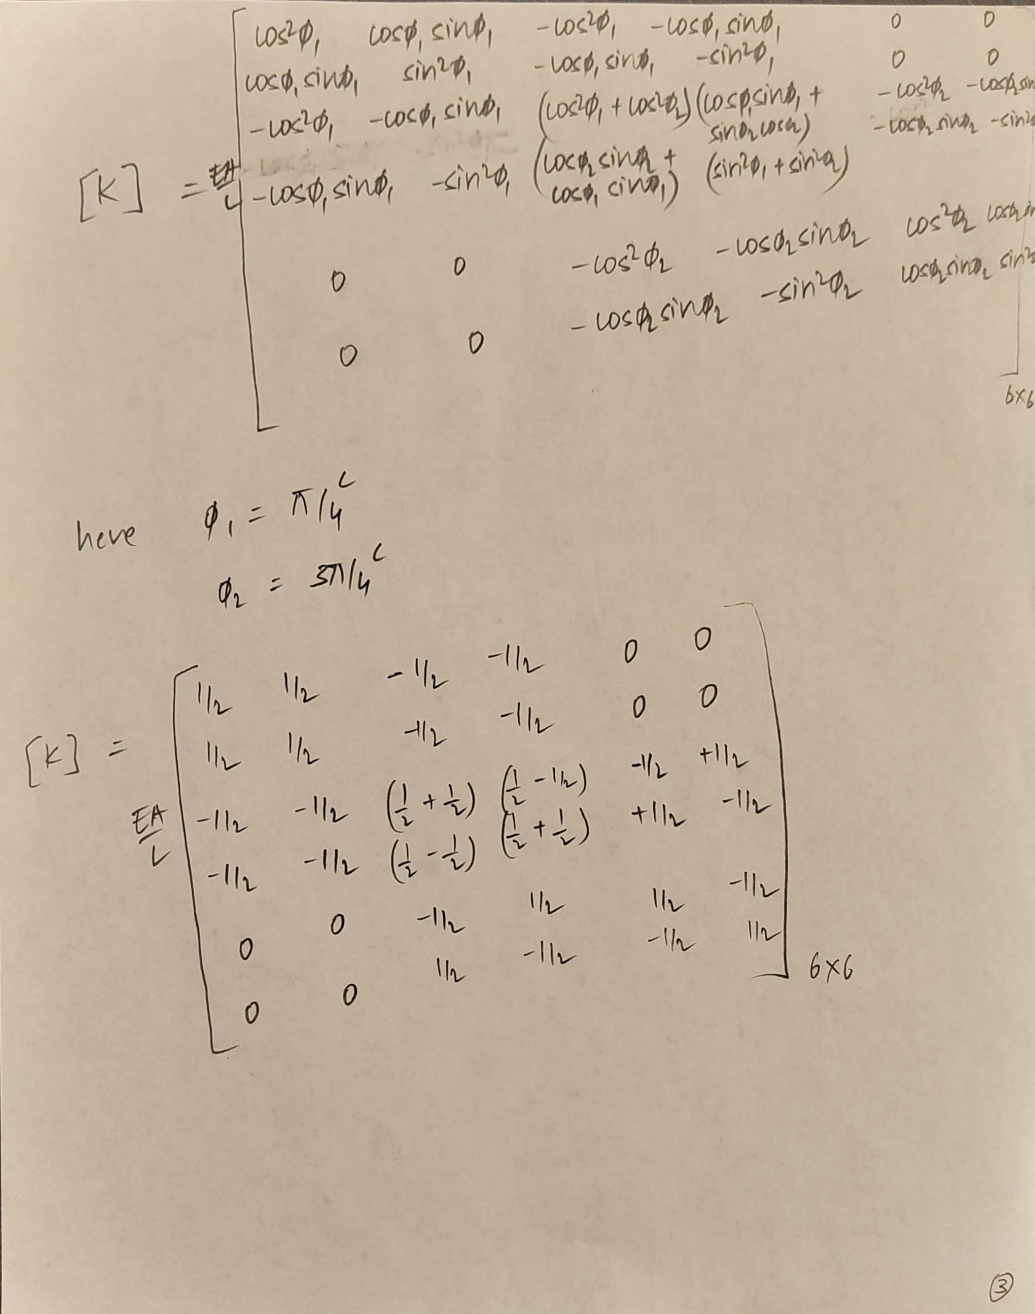 cos²φ₁ cosφ₁ sinφ₁ -cos²φ₁ -cosφ₁ sinφ₁ 0 0
cosφ₁ sinφ₁ sin²φ₁ -cosφ₁ sinφ₁ -sin²φ₁ 0 0
-cos²φ₁ -cosφ₁ sinφ₁ (cos²φ₁ + cos²φ₂) (cosφ₁ sinφ₁ + sinφ₂ cosφ₂) -cos²φ₂ -cosφ₂ sin
[K] = EA/L -cosφ₁ sinφ₁ -sin²φ₁ (cosφ₂ sinφ₂ + cosφ₁ sinφ₁) (sin²φ₁ + sin²φ₂) -cosφ₂ sinφ₂ -sin²
0 0 -cos²φ₂ -cosφ₂ sinφ₂ cos²φ₂ cosφ₂ sin
0 0 -cosφ₂ sinφ₂ -sin²φ₂ cosφ₂ sinφ₂ sin²
6×6
here φ₁ = π/4ᶜ
φ₂ = 3π/4ᶜ
1/2 1/2 -1/2 -1/2 0 0
[K] = 1/2 1/2 -1/2 -1/2 0 0
EA/L -1/2 -1/2 (1/2 + 1/2) (1/2 - 1/2) -1/2 +1/2
-1/2 -1/2 (1/2 - 1/2) (1/2 + 1/2) +1/2 -1/2
0 0 -1/2 1/2 1/2 -1/2
0 0 1/2 -1/2 -1/2 1/2
6×6
3